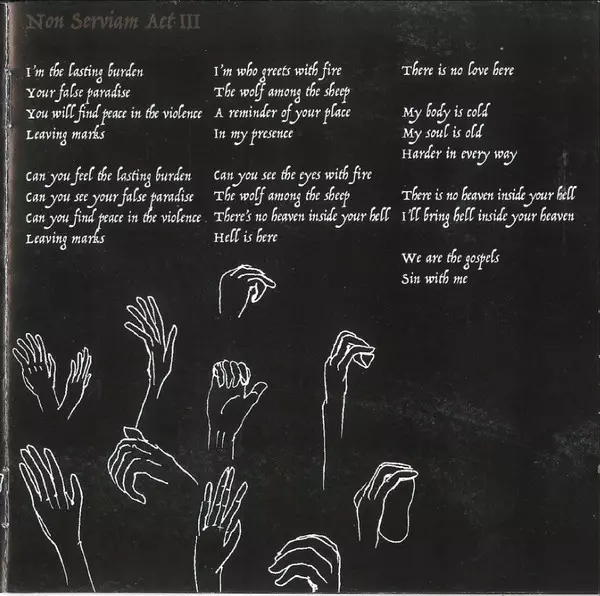 Non Serviam Act III
I'm the lasting burden
Your false paradise
You will find peace in the violence
Leaving marks
Can you feel the lasting burden
Can you see your false paradise
Can you find peace in the violence
Leaving marks
I'm who greets with fire
The wolf among the sheep
A reminder of your place
In my presence
Can you see the eyes with fire
The wolf among the sheep
There's no heaven inside your hell
Hell is here
There is no love here
My body is cold
My soul is old
Harder in every way
There is no heaven inside your hell
I'll bring hell inside your heaven
We are the gospels
Sin with me